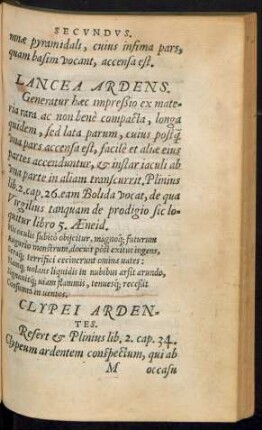 SECVNDVS.
mnæ pyramidali, cuius infima pars,
quam basim vocant, accensa est.
LANCEA ARDENS.
Generatur hæc impreßio ex mate-
ria rara ac non benè compacta, longa
quidem, sed lata parum, cuius postq̃
vna pars accensa est, facilè et aliæ eius
partes accenduntur, & instar iaculi ab
vna parte in aliam transcurrit. Plinius
lib. 2. cap. 26. eam Bolida vocat, de qua
Virgilius tanquam de prodigio sic lo-
quitur libro 5. Æneid.
Hic oculis subitò obijcitur, magnoq́; futurum
Augurio monstrum, docuit pòst exitus ingens,
terrifici cecinerunt omina vates:
volans liquidis in nubibus arsit arundo,
Signauitq́; viam flammis, tenuesq́; recessit
Consumta in ventos.
CLYPEI ARDEN-
TES.
Refert & Plinius lib. 2. cap. 34.
Clypeum ardentem conspectum, qui ab
M occasu